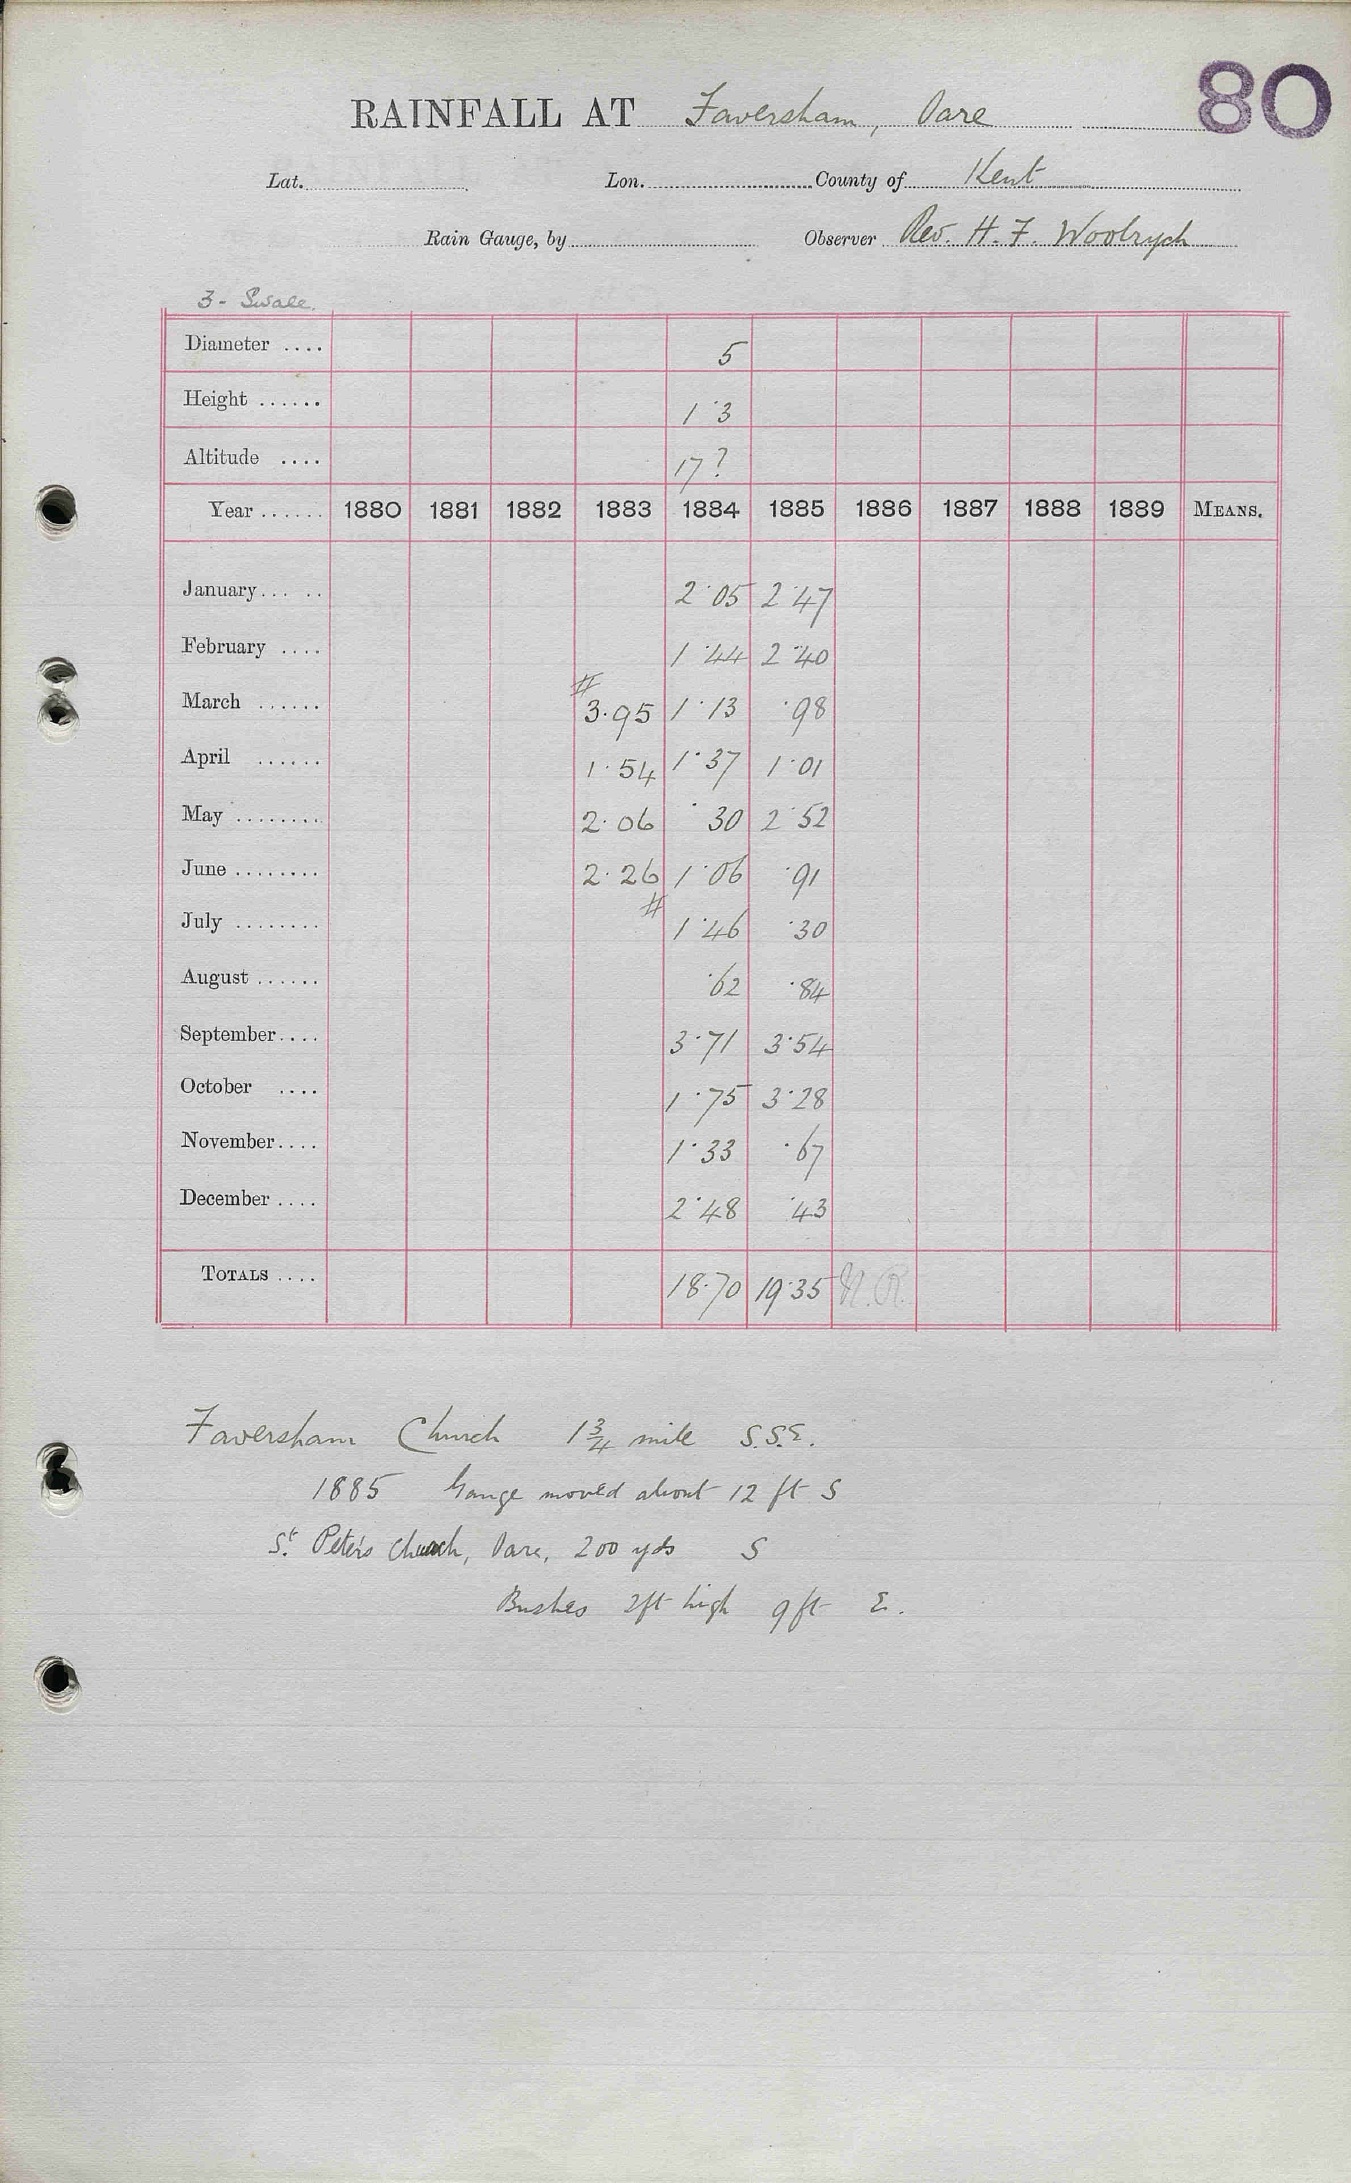 80
RAINFALL AT Faversham, Oare
Lat. Lon. County of Kent
Rain Gauge, by Observer Rev. H. F. Woolrych
3 - Swale.
Diameter .... 5
Height ...... 1·3
Altitude .... 17?
Year ...... 1880 1881 1882 1883 1884 1885 1886 1887 1888 1889 MEANS.
January... .. 2·05 2·47
February .... 1·44 2·40
March ...... # 3·95 1·13 ·98
April ...... 1·54 1·37 1·01
May ........ 2·06 ·30 2·52
June ........ 2·26 1·06 ·91
July ........ # 1·46 ·30
August ...... ·62 ·84
September.... 3·71 3·54
October .... 1·75 3·28
November.... 1·33 ·67
December .... 2·48 ·43
TOTALS .... 18·70 19·35 N.R.
Faversham Church 1¾ mile S.S.E.
1885 Gauge moved about 12 ft S
St. Peter's Church, Oare, 200 yds S
Bushes 2ft high 9ft E.